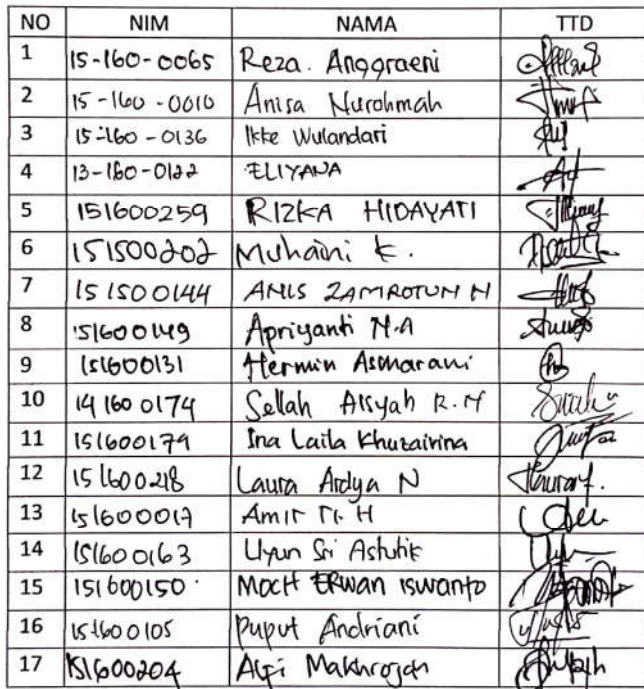 NO NIM NAMA TTD
1 15-160-0065 Reza. Anggraeni
2 15-160-0010 Anisa Nurohmah
3 15-160-0136 Ikke Wulandari
4 13-160-0122 ELIYANA
5 151600259 RIZKA HIDAYATI
6 151500202 Muhaini K.
7 151500144 ANIS ZAMROTUN N
8 151600149 Apriyanti N.A
9 151600131 Hermin Asmarani
10 141600174 Sellah Aisyah R.M
11 151600179 Ina Laila Khuzairina
12 151600218 Laura Ardya N
13 151600017 Amir H
14 151600163 Uyun Sri Astutik
15 151600150 MOCH ERWAN ISWANTO
16 151600105 Puput Andriani
17 151600204 Makhrojah